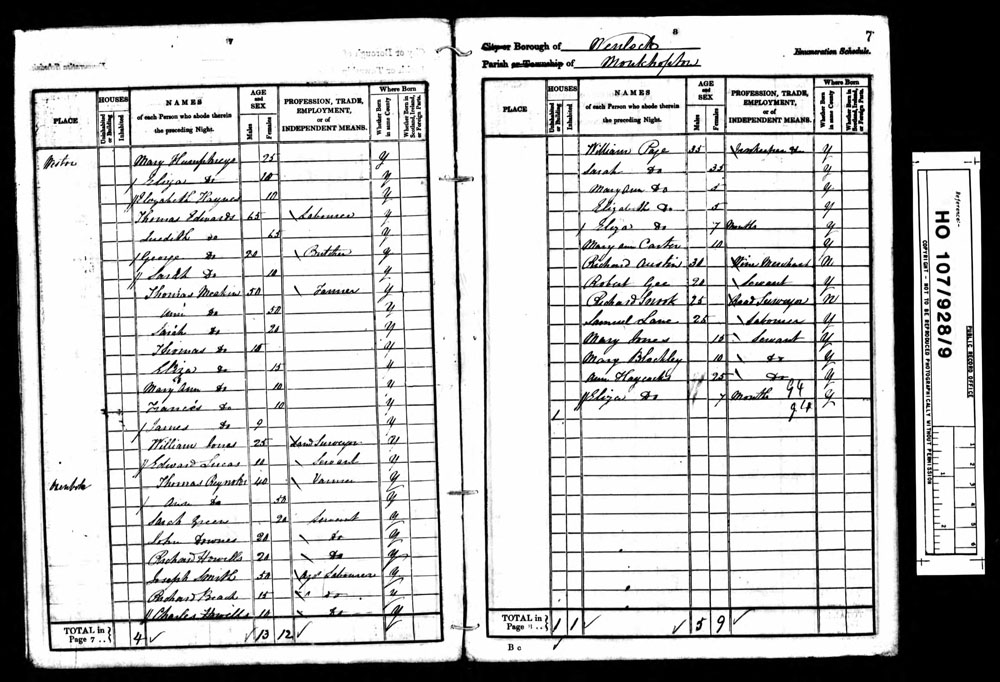 PLACE
HOUSES
Uninhabited or Building
Inhabited
NAMES
of each Person who abode therein the preceding Night.
AGE and SEX
Males
Females
PROFESSION, TRADE, EMPLOYMENT, or of INDEPENDENT MEANS.
Where Born
Whether Born in same County
Whether Born in Scotland, Ireland, or Foreign Parts.
Mary Humphreys 25 Y
Eliza Do 10 Y
Elizabeth Haynes 10 Y
Thomas Edwards 65 Labourer Y
Do 65 Y
George Do 20 Butcher Y
Sarah Do 10 Y
Thomas 50 Farmer Y
Ann Do 50 Y
Sarah Do 20 Y
Thomas Do 15 Y
Eliza Do 15 Y
Mary Ann Do 10 Y
Frances Do 10 Y
James Do 9 Y
William Jones 25 Land Surveyor N
Edward Lucas 10 Servant Y
Thomas Reynolds 40 Farmer Y
Ann Do 50 Y
Sarah Green 20 Servant Y
John Downes 20 Do Y
Richard Howells 20 Do Y
Joseph Smith 50 Ag Labourer Y
Richard Beach 15 Do Y
Charles Howells 10 Do Y
TOTAL in Page 7 4 13 12
8
7
City or Borough of Wenlock
Enumeration Schedule.
Parish or Township of Monkhopton
PLACE
HOUSES
Uninhabited or Building
Inhabited
NAMES
of each Person who abode therein the preceding Night.
AGE and SEX
Males
Females
PROFESSION, TRADE, EMPLOYMENT, or of INDEPENDENT MEANS.
Where Born
Whether Born in same County
Whether Born in Scotland, Ireland, or Foreign Parts.
William Page 35 Y
Sarah Do 35 Y
Mary Ann Do 5 Y
Elizabeth Do 5 Y
Eliza Do 7 Months Y
Mary Ann Carter 10 Y
Richard Austin 30 Wine Merchant N
Robert Gee 20 Servant Y
Richard 25 Road Surveyor N
Samuel Lane 25 Labourer Y
Mary Jones 15 Servant Y
Mary Blackley 10 Do Y
Ann Haycocks 25 Do Y
Eliza Do 7 Months Y
TOTAL in Page 1 1 5 9
B c
Reference:-
HO 107/928/9
PUBLIC RECORD OFFICE
COPYRIGHT - NOT TO BE REPRODUCED PHOTOGRAPHICALLY WITHOUT PERMISSION
1
2
3
4
5
6